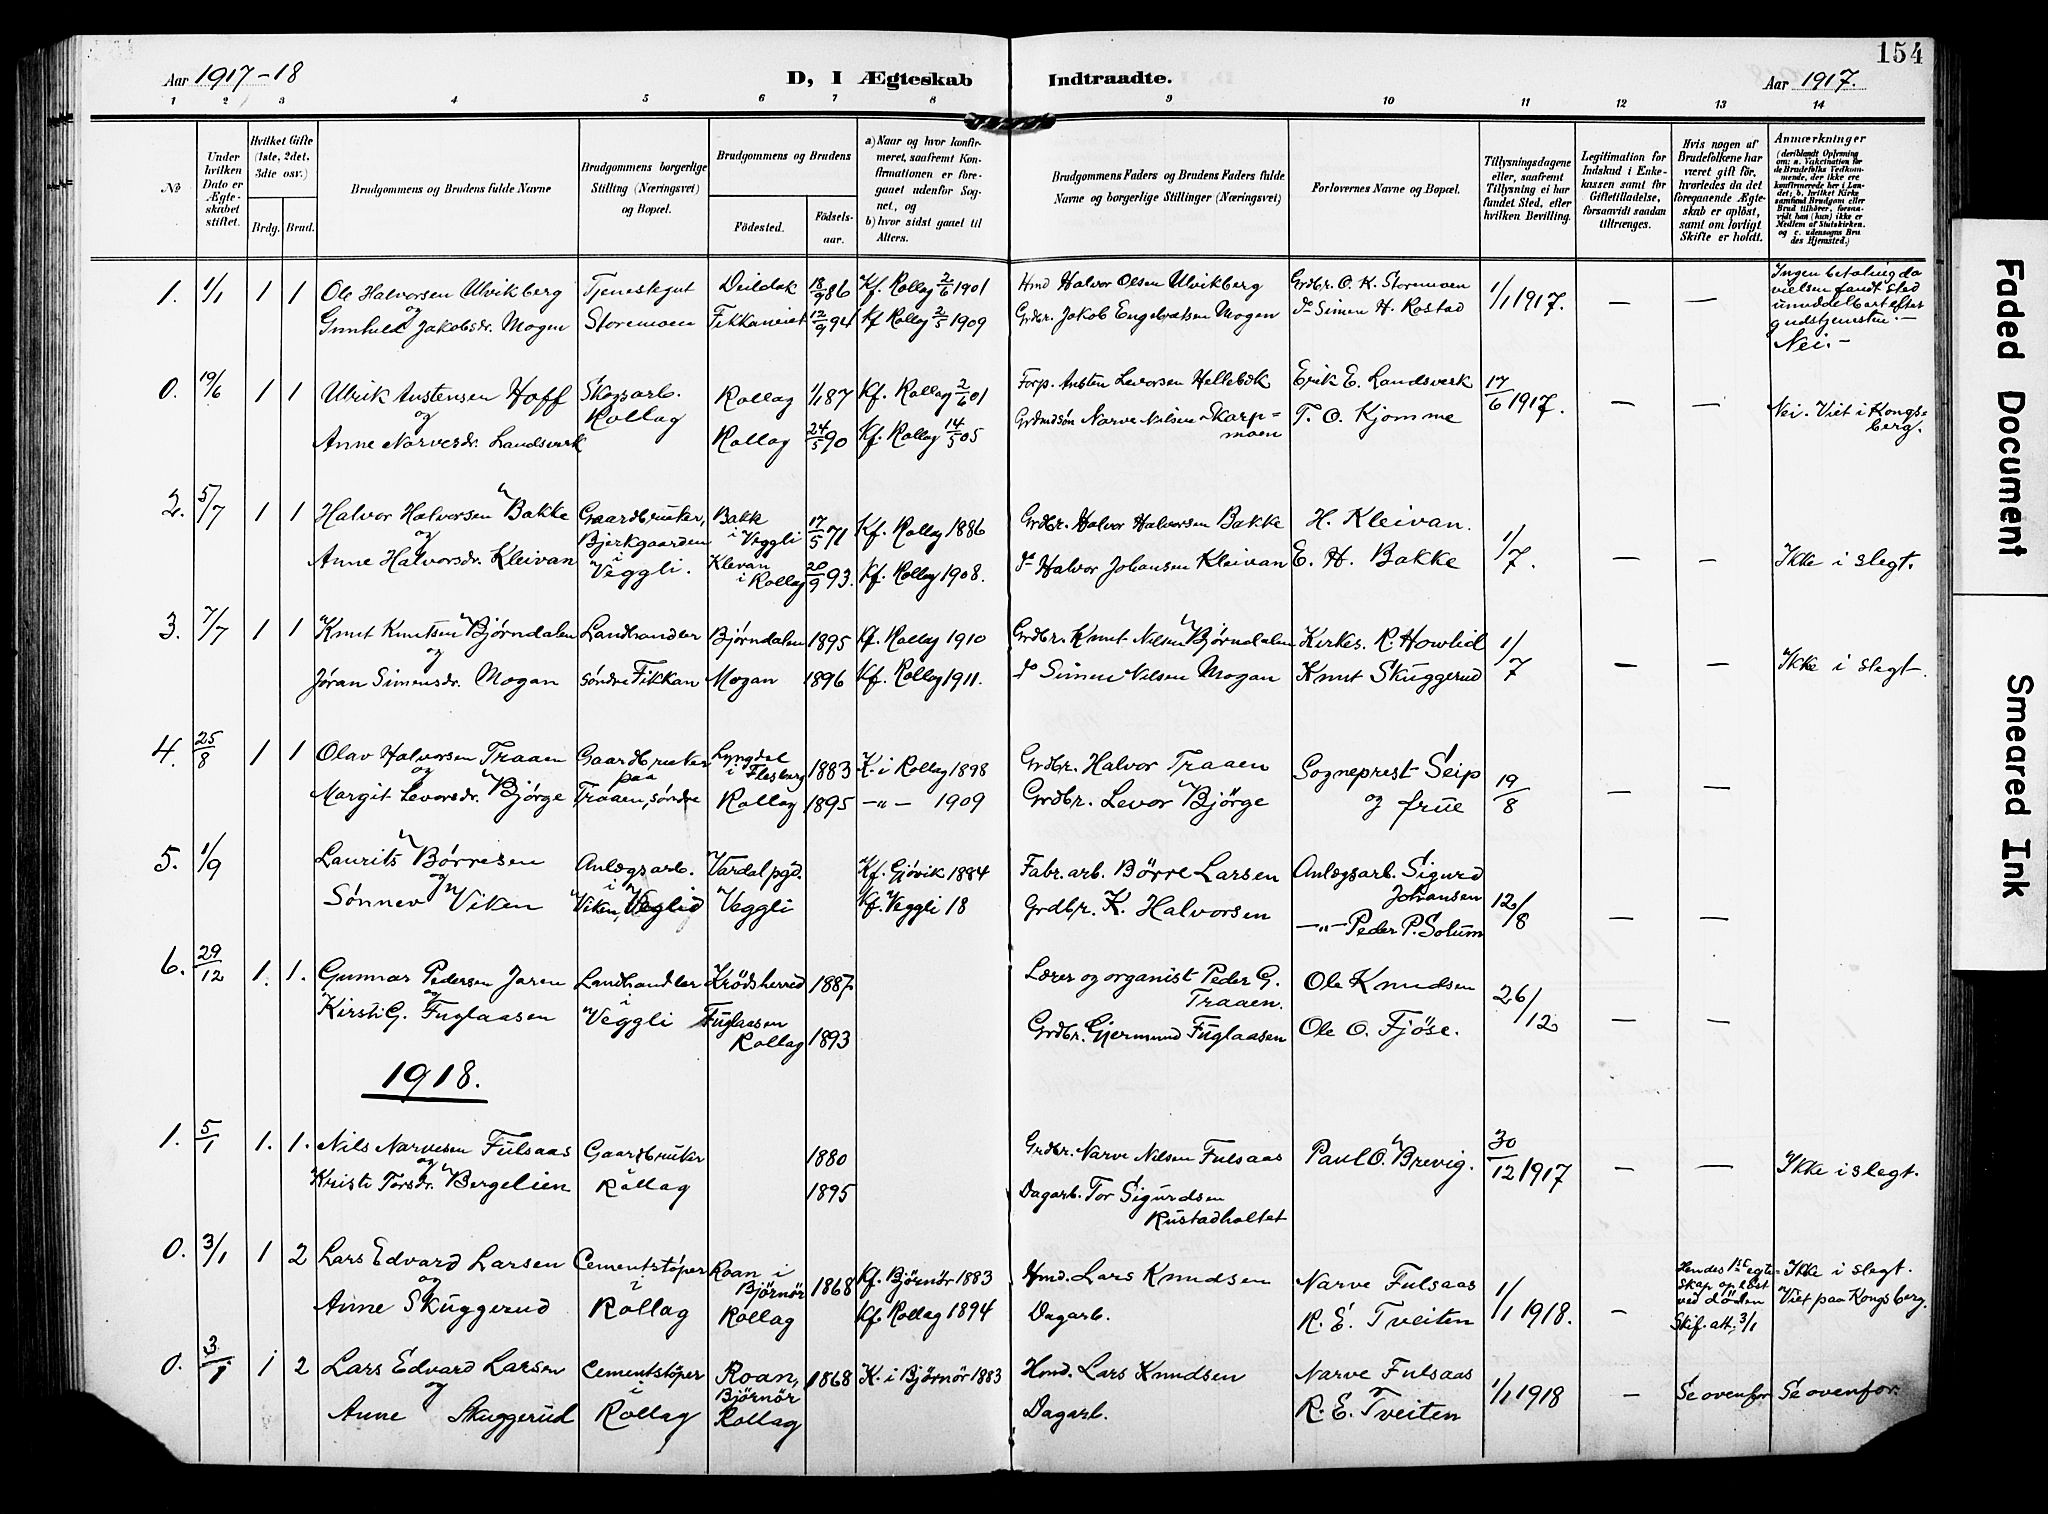 154
Aar 1917-18
D, I Ægteskab
Indtraadte.
Aar 1917.
1 2 3 4 5 6 7 8 9 10 11 12 13 14
No
Under hvilken Dato er Ægteskabet stiftet.
Hvilket Gifte (1ste, 2det, 3die osv.)
Brdg. Brud.
Brudgommens og Brudens fulde Navne
Brudgommens borgerlige Stilling (Næringsvei) og Bopæl.
Brudgommens og Brudens
Fødested.
Fødselsaar.
a) Naar og hvor konfirmeret, saafremt Konfirmationen er foregaaet udenfor Sognet, og
b) hvor sidst gaaet til Alters.
Brudgommens Faders og Brudens Faders fulde Navne og borgerlige Stillinger (Næringsvei)
Forlovernes Navne og Bopæl.
Tillysningsdagene eller, saafremt Tillysning ei har fundet Sted, efter hvilken Bevilling.
Legitimation for Indskud i Enkekassen samt for Giftetilladelse, forsaavidt saadan tiltrænges.
Hvis nogen af Brudefolkene har været gift før, hvorledes da det foregaaende Ægteskab er opløst, samt om lovligt Skifte er holdt.
Anmærkninger
(deriblandt Oplysning om: a. Vakcination for de Brudefolks Vedkommende, der ikke ere konfirmerede her i Landet; b. hvilket Kirkesamfund Brudgom eller Brud tilhører, forsaavidt han (hun) ikke er Medlem af Statskirken, og c. udensogns Brudes Hjemsted.)
1. 1/1 1 1 Ole Halvorsen Ulvikberg Tjenestegut Deildok 18/9 86 Kf. Rollag 2/6 1901 Hmd Halvor Olsen Ulvikberg Grdbr. O. K. Storemoen 1/1 1917. — — Ingen betaling da vielsen fandt sted umiddelbart efter gudstjenesten.—
og
Gunhild Jakobsdr. Mogen Storemoen Fikkaneiet 12/9 94 Kf Rollag 2/5 1909 Grdbr. Jakob Engebretsen Mogen do Simen H. Rostad Nei.—
0. 19/6 1 1 Ulrik Austensen Hoff Skogsarb. Rollag 1/1 87 Kf. Rollag 2/6 01 Forp. Austen Levorsen Hellebæk Erik E. Landsverk 17/6 1917. — — Nei. Viet i Kongsberg.
og Rollag
Anne Narvesdr. Landsverk Rollag 24/5 90 Kf. Rollag 14/5 05 Grdmdsøn Narve Nilsen Skarpmoen T. O. Kjomme
2. 5/7 1 1 Halvor Halvorsen Bakke Gaardbruker, Bakk i Veggli 17/5 71 Kf. Rollag 1886 Grdbr. Halvor Halvorsen Bakke H. Kleivan. 1/7. — — Ikke i slegt.
og Bjerkgaarden i Veggli.
Anne Halvorsdr. Kleivan Klevan i Rollag 20/9 93. Kf. Rollag 1908. do Halvor Johansen Kleivan E. H. Bakke
3. 7/7 1 1 Knut Knutsen Bjørndalen Landhandler Bjørndalen 1895 Kf. Rollag 1910 Grdbr. Knut Nilsen Bjørndalen Kirkes. R. Howlid 1/7 — — Ikke i slegt.
og
Jøran Simensdr. Mogan søndre Fikkan Mogan 1896 Kf. Rollag 1911. do Simen Nilsen Mogan Knut Skuggerud
4. 25/8 1 1 Olav Halvorsen Traaen Gaardbruker Lyngdal i Flesberg 1883 K. i Rollag 1898 Grdbr. Halvor Traaen Sogneprest Seip 19/8 — —
og paa
Margit Levorsdr. Bjørge Traaen, søndre Rollag 1895 —"— 1909 Grdbr. Levor Bjørge og frue
5. 1/9 Laurits Børresen Anlægsarb. Vardal pgd. Kf. Gjøvik 1884 Fabr. arb. Børre Larsen Anlægsarb. Sigurd Johansen 12/8 — —
og i
Sønnev Viken Viken, Veglid Veggli Kf. Veggli 18 Grdbr. K. Halvorsen —"— Peder P. Solum
6. 29/12 1. 1. Gunnar Pedersen Jaren Landhandler Krödsherred 1887 Lærer og organist Peder G. Traaen. Ole Knudsen 26/12 — —
og i
Kirsti G. Fuglaasen Veggli Fuglaasen Rollag 1893 Grdbr. Gjermund Fuglaasen Ole O. Fjöse.
1918.
1. 5/1 1. 1. Nils Narvesen Fulsaas Gaardbruker 1880 Grdbr. Narve Nilsen Fulsaas Paul O. Brevig. 30/12 1917 — — Ikke i slegt.
og
Kristi Torsdr. Bergelien Rollag 1895 Dagarb. Tor Sigurdsen Rustadholtet
0. 3/1 1 2 Lars Edvard Larsen Cementstøper Roan i Bjørnör 1868 Kf. Bjørnör 1883 Hmd. Lars Knudsen Narve Fulsaas 1/1 1918. — Hendes 1ste egteskap opløst ved döden Skif. att. 3/1 Ikke i slegt. Viet paa Kongsberg.
og i
Anne Skuggerud Rollag Rollag Kf. Rollag 1894 Dagarb. R. E. Tveiten
0. 3/1 1 2 Lars Edvard Larsen Cementstöper Roan, Björnör 1868 K. i Björnör 1883 Hmd. Lars Knudsen Narve Fulsaas 1/1 1918 — Se ovenfor Se ovenfor.
og i
Anne Skuggerud Rollag Rollag Dagarb. R. E. Tveiten
Faded Document
Smeared Ink